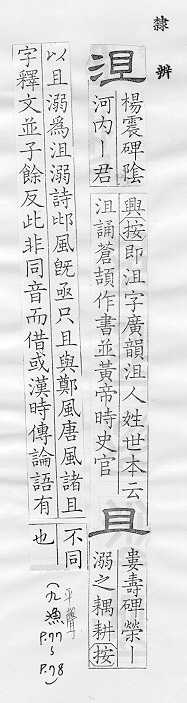 隸辨
沮
楊震碑陰
河內丨君
興按即沮字廣韻沮人姓世本云
沮誦蒼頡作書並黃帝時史官
且
婁壽碑榮丨
溺之耦耕按
以且溺為沮溺詩邶風旣亟只且與鄭風唐風諸且
字釋文並子餘反此非同音而借或漢時傳論語有
不同
也
平聲
(九漁)
P.77～
P.78